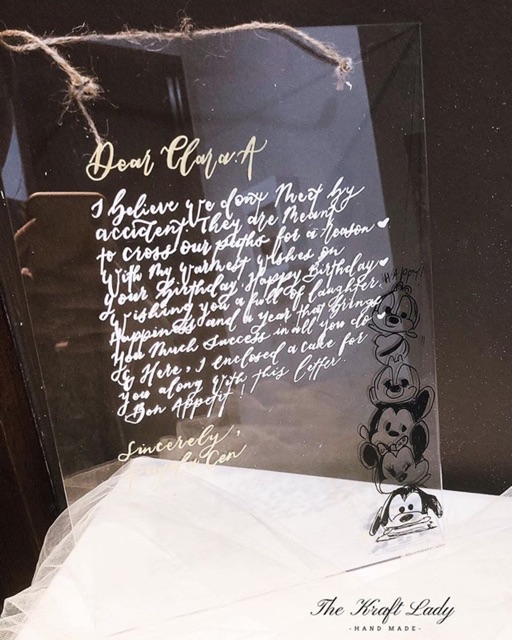 Dear Clara.A
I believe we don't Meet by
accident. They are Meant
to cross our paths for a reason
With My Warmest Wishes on
Your Birthday, Happy Birthday
Wishing you a full of laughter,
Happiness and a year that brings
You Much Success in all you do
& Here, I enclosed a cake for
you along With this letter.
Bon Appetit!
HAPPY!!
Sincerely,
Cen
The Kraft Lady
-HAND MADE-